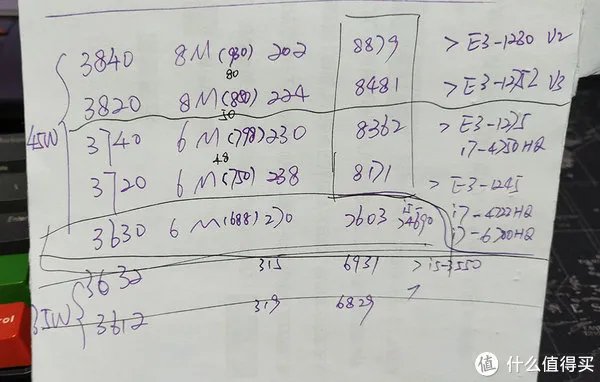 3840 8M(930) 202 8879 > E3-1230 V2
80
3820 8M(880) 224 8481 > E3-1252 V3
50
45W 3740 6M(798) 230 8362 > E3-1275
i7-4750HQ
48
3720 6M(750) 238 8171 > E3-1245
i7-4722HQ
3630 6M(688) 270 7603 > i5-4690 i7-6700HQ
3632 315 6931 > i5-3550
35W 3612 319 6829 >
rol
值 什么值得买